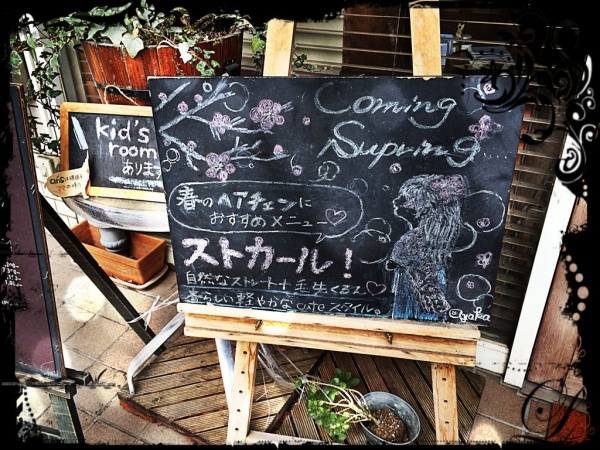 Coming
Supring
春のヘアチェンに
おすすめメニュー♡
ストカール!
自然なストレート+毛先くるん♡
春らしい軽やかなcuteスタイル。
kid's
room
あります